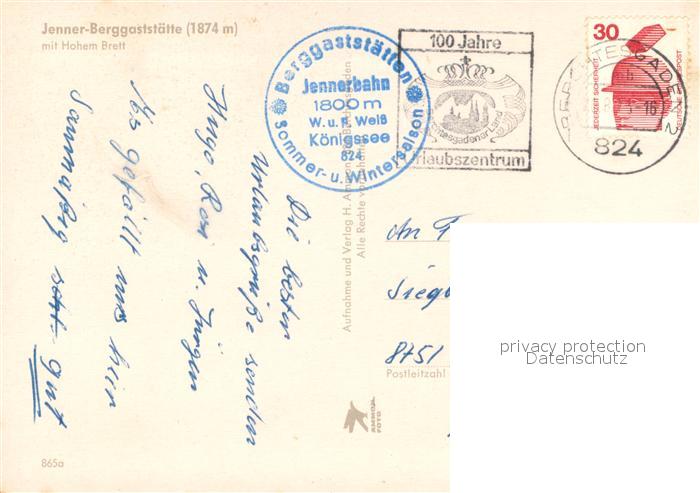 Jenner-Berggaststätte (1874 m)
mit Hohem Brett
Berggaststätten
Jennerbahn
1800 m
W. u. R. Weiß
Königssee
824
Sommer- u. Wintersaison
100 Jahre
Urlaubszentrum
30
JEDERZEIT SICHERHEIT
DEUTSCHE BUNDESPOST
BERCHTESGADEN 2
824
Die besten
Urlaubsgrüße senden
Hugo, Rosi u. Jürgen
Es gefällt uns hier
gut
Aufnahme und Verlag H. Ammon
Alle Rechte vorbehalten
An F
Sieg
8751
Postleitzahl
AMMON
FOTO
865a
privacy protection
Datenschutz